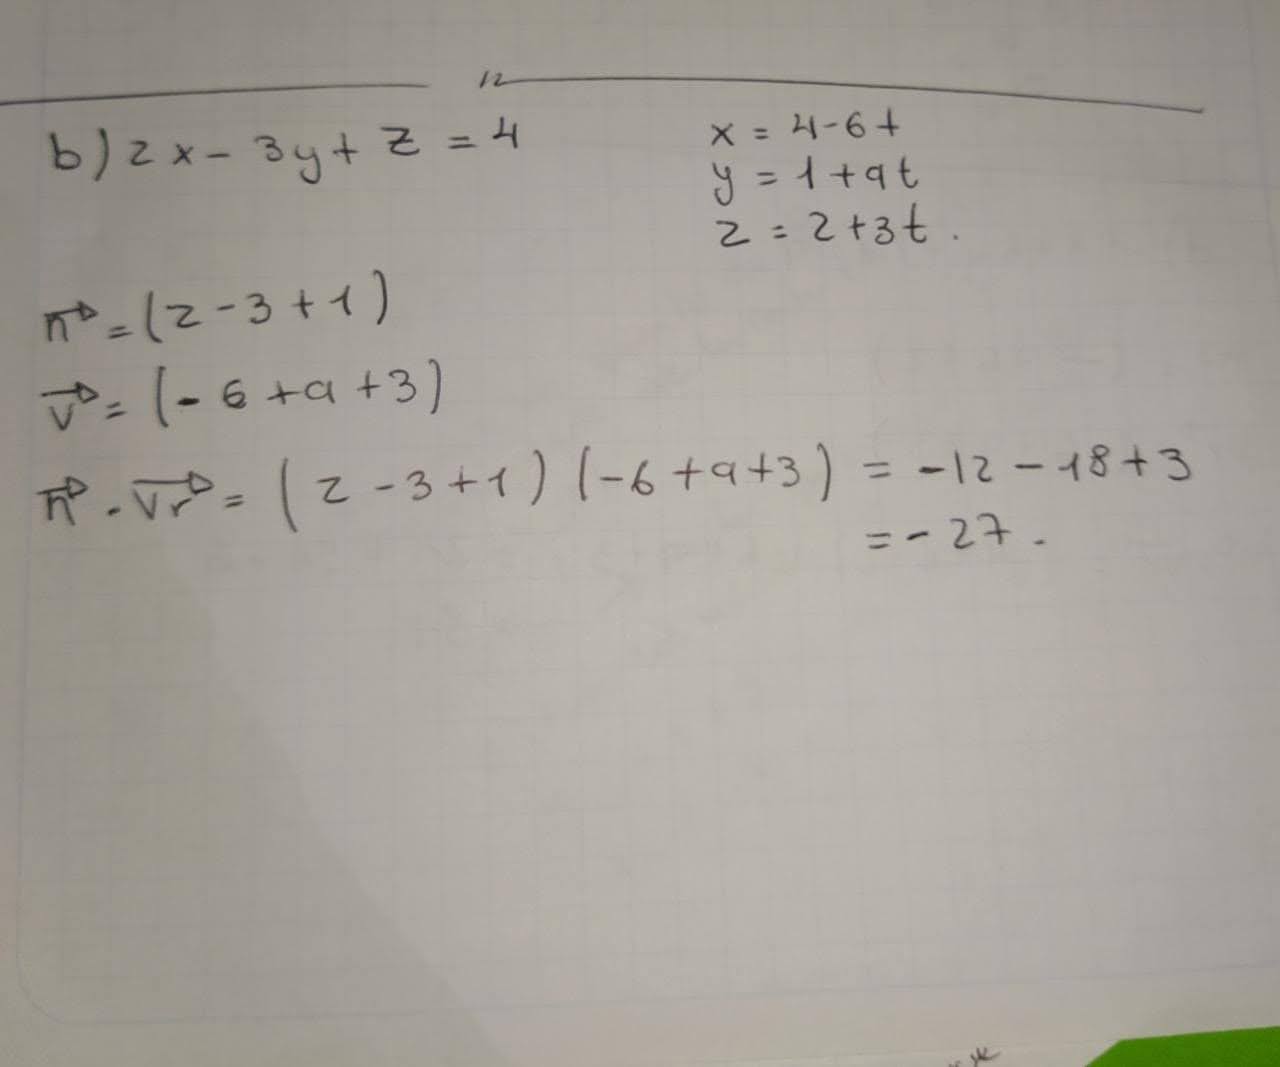 12
b) 2x - 3y + z = 4
x = 4 - 6t
y = 1 + 9t
z = 2 + 3t.
n⃗ = (2 - 3 + 1)
v⃗ = (- 6 + 9 + 3)
n⃗ . v⃗r = (2 - 3 + 1) (-6 + 9 + 3) = -12 - 18 + 3
= - 27.